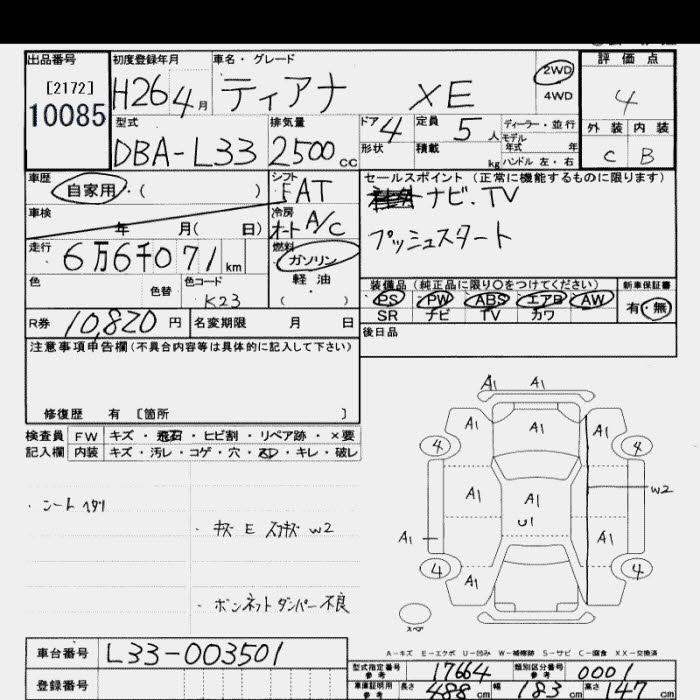 出品番号 初度登録年月 車名・グレード 2WD 評価点
[2172] H26 4月 ティアナ XE 4WD 4
10085
型式 排気量 ドア 4 定員 5人 ディーラー・並行 外装 内装
モデル
DBA-L33 2500cc 形状 積載 kg 年式 年 C B
ハンドル 左・右
車歴 シフト セールスポイント (正常に機能するものに限ります)
自家用・( ) FAT ナビ.TV
車検 冷房
年 月( 日) オート A/C プッシュスタート
走行 燃料
6万6千071km ガソリン
色 色替 色コード 軽油 装備品 (純正品に限り○をつけてください) 新車保証書
K23 ( ) PS PW ABS エアB AW 有・無
R券 10,820円 名変期限 月 日 SR ナビ TV カワ
注意事項申告欄(不具合内容等は具体的に記入して下さい) 後日品
修復歴 有 [箇所 ]
検査員 FW キズ・飛石・ヒビ割・リペア跡・×要
記入欄 内装 キズ・汚レ・コゲ・穴・スレ・キレ・破レ
A1 A1
A1 A1 A1
4 4
A1 A1 W2
U1
A1 A1
4 4
A1
スペア
・シート ヘタリ
・キズ E スリキズ W2
・ボンネットダンパー不良
A-キズ E-エクボ U-凹み W-補修跡 S-サビ C-腐食 XX-交換済
車台番号 L33-003501
型式指定番号 参考 17664 類別区分番号 参考 0001
登録番号 車庫証明用 参考 長さ 488cm 幅 183cm 高さ 147cm